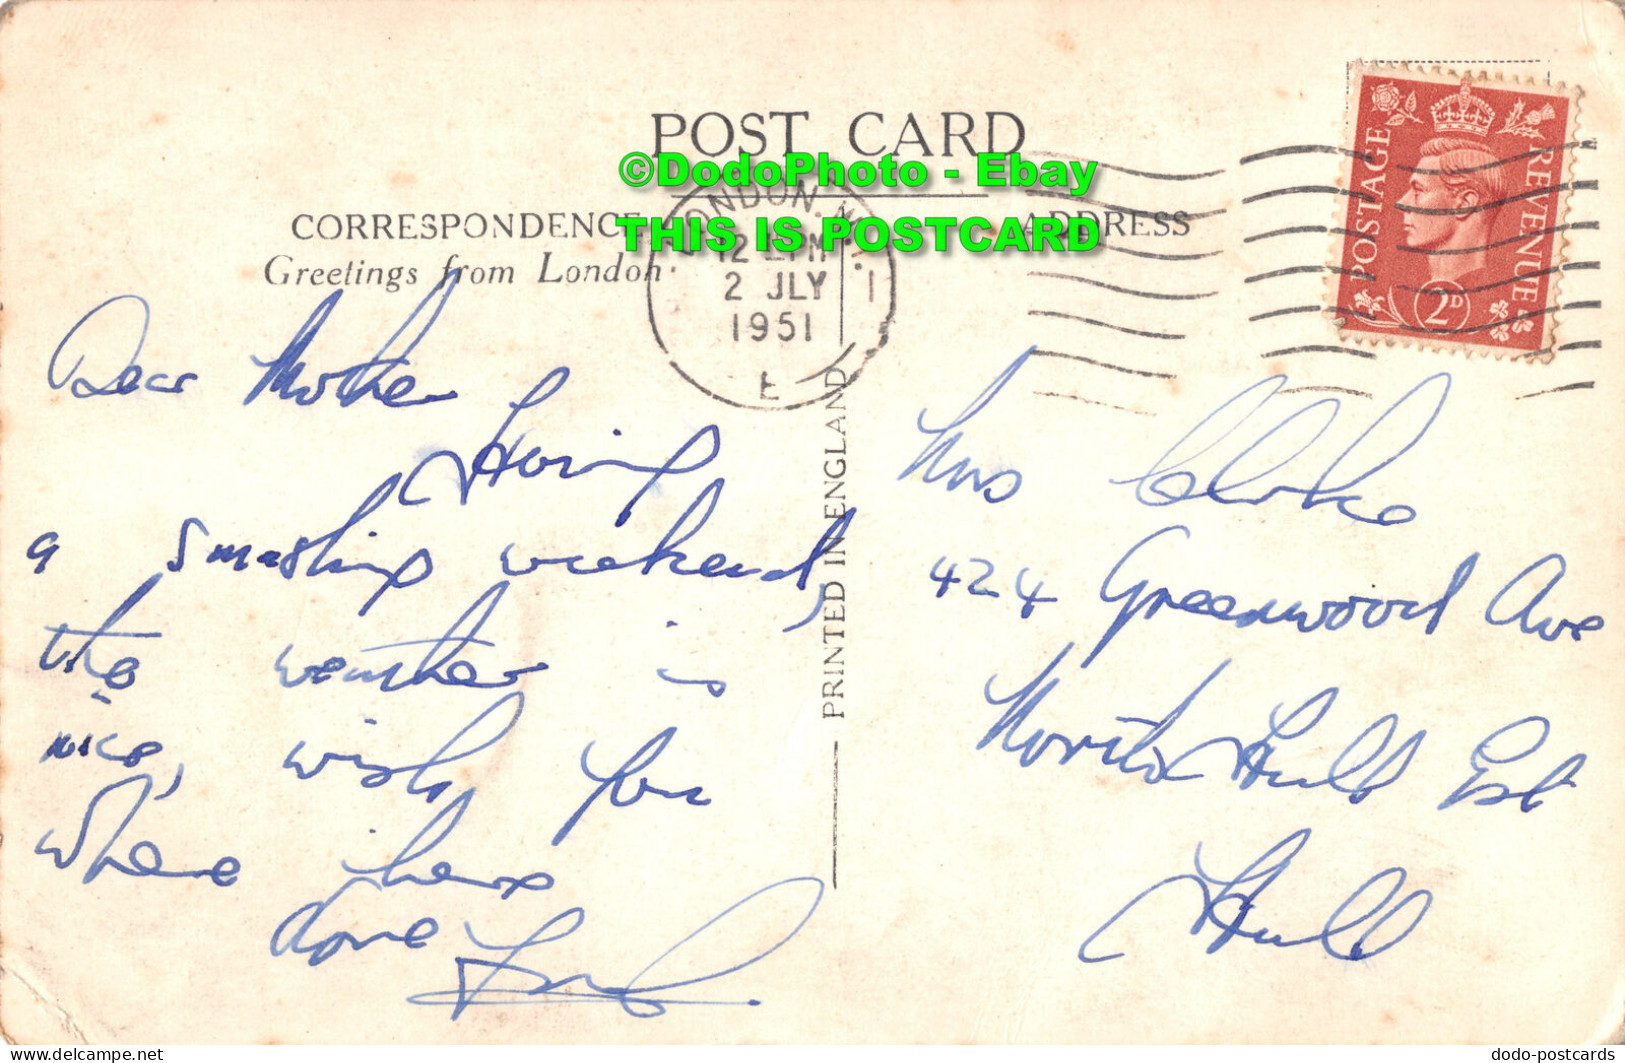 POST CARD
©DodoPhoto - Ebay
THIS IS POSTCARD
CORRESPONDENCE
ADDRESS
Greetings from London.
LONDON. W.
12 PM
2 JLY
1951
E
POSTAGE
REVENUE
2D
PRINTED IN ENGLAND
Dear Mother
Having
a smashing weekend,
the weather is
nice, wish you
where here
Love
Mrs Clarke
424 Greenwood Ave
North Hull Est
Hull
dodo-postcards.com